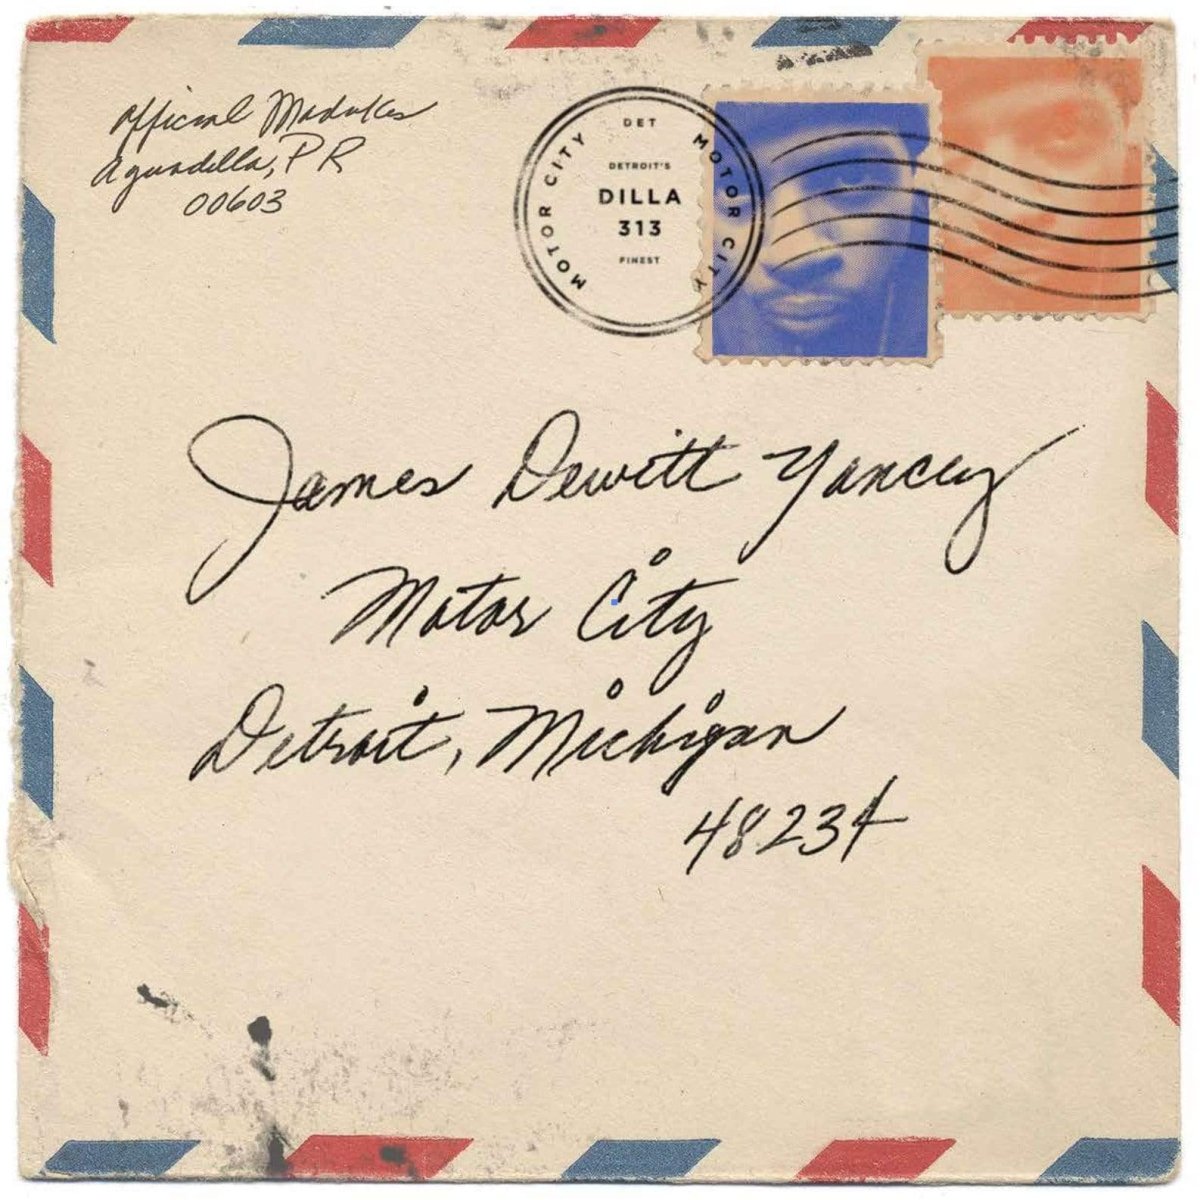 Official Madukes
Aguadilla, PR
00603
DET
MOTOR CITY
DETROIT'S
DILLA
313
FINEST
MOTOR CITY
James Dewitt Yancey
Motor City
Detroit, Michigan
48234